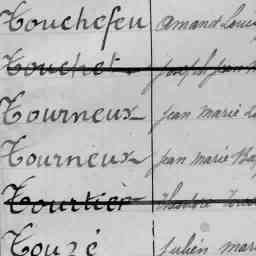 Touchefeu Amand Loui
Touchet Joseph Jean M
Tourneux Jean Marie L
Tourneux Jean Marie Ba
Tourtier Théodore
Touzé Julien mari